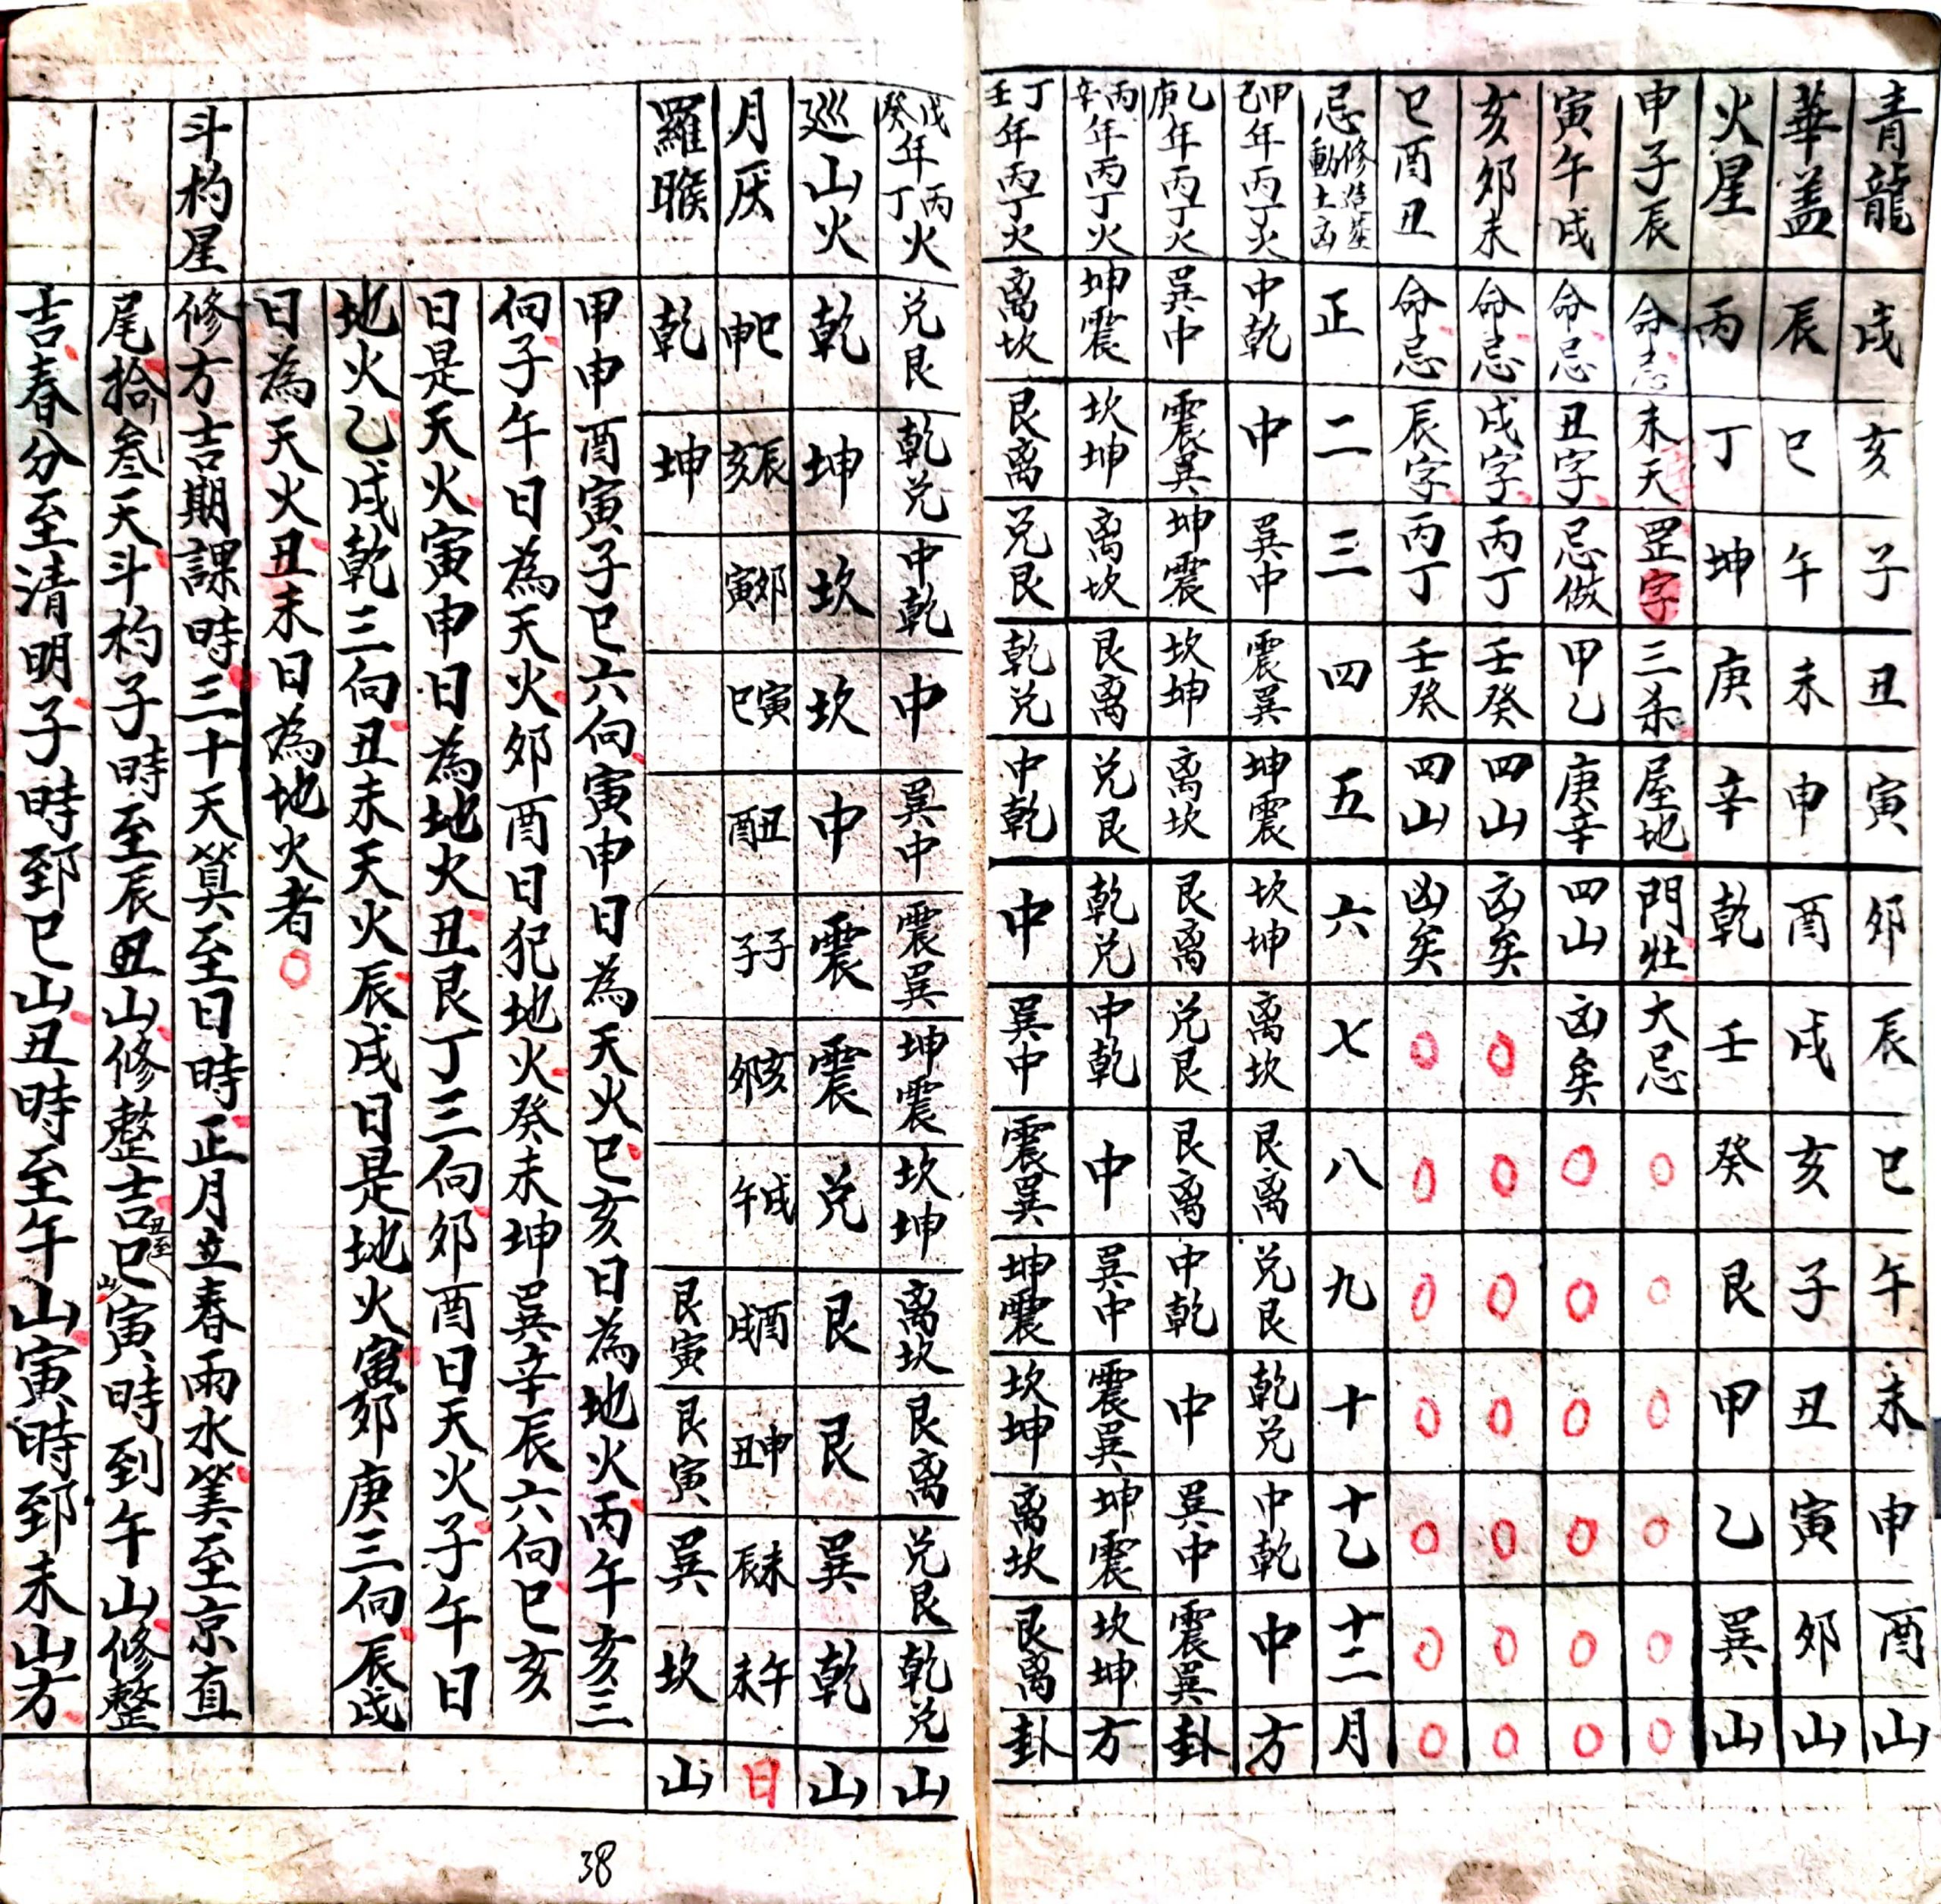 青龍 戌 亥 子 丑 寅 卯 辰 巳 午 未 申 酉 山
華盖 辰 巳 午 未 申 酉 戌 亥 子 丑 寅 卯 山
火星 丙 丁 坤 庚 辛 乾 壬 癸 艮 甲 乙 巽 山
申子辰 命忌 未天 罡字 三杀 屋地 門灶 大忌 〇 〇 〇 〇 〇 〇
寅午戌 命忌 丑字 忌做 甲乙 庚辛 四山 凶矣 〇 〇 〇 〇 〇 〇
亥卯未 命忌 戌字 丙丁 壬癸 四山 凶矣 〇 〇 〇 〇 〇 〇 〇
巳酉丑 命忌 辰字 丙丁 壬癸 四山 凶矣 〇 〇 〇 〇 〇 〇 〇
忌修造葬動土凶 正 二 三 四 五 六 七 八 九 十 十乙 十二 月
甲己年丙丁火 中乾 中 巽中 震巽 坤震 坎坤 离坎 艮离 兑艮 乾兑 中乾 中 方
乙庚年丙丁火 巽中 震巽 坤震 坎坤 离坎 艮离 兑艮 艮离 中乾 中 巽中 震巽 卦
丙辛年丙丁火 坤震 坎坤 离坎 艮离 兑艮 乾兑 中乾 中 巽中 震巽 坤震 坎坤 方
丁壬年丙丁火 离坎 艮离 兑艮 乾兑 中乾 中 巽中 震巽 坤震 坎坤 离坎 艮离 卦
戊癸年丙丁火 兑艮 乾兑 中乾 中 巽中 震巽 坤震 坎坤 离坎 艮离 兑艮 乾兑 山
廵山火 乾 坤 坎 坎 中 震 震 兑 艮 艮 巽 乾 山
月厌 巳申 辰亥 卯寅 寅巳 丑酉 子子 亥卯 戌午 酉戌 申丑 未辰 午未 日
羅睺 乾 坤 艮寅 艮寅 巽 坎 山
甲申酉寅子巳六向寅申日為天火巳亥日為地火丙午亥三
向子午日為天火卯酉日犯地火癸未坤巽辛辰六向巳亥
日是天火寅申日為地火丑艮丁三向卯酉日天火子午日
地火乙戌乾三向丑未天火辰戌日是地火寅卯庚三向辰戌
日為天火丑未日為地火者〇
斗杓星 修方吉期課時三十天算至日時正月立春雨水筭至京直
尾拾叁天斗杓子時至辰丑山修整吉丑至巳山寅時到午山修整
吉春分至清明子時到巳山丑時至午山寅時到未山方
38